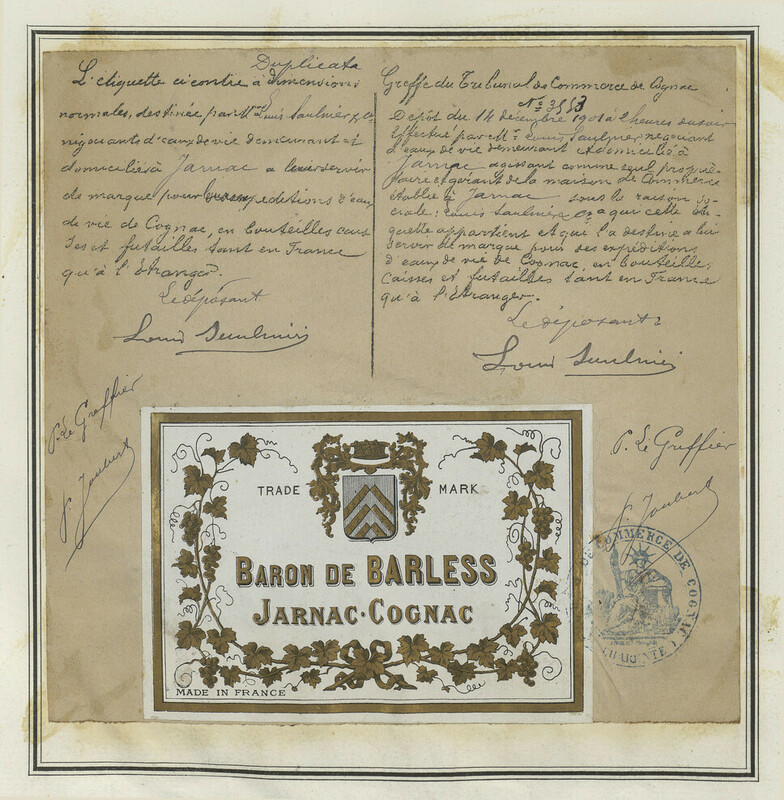 Duplicata
L'étiquette ci contre à dimensions
normales, destinée par Mr Louis Saulnier & Cie
négociants d'eaux de vie demeurant et
domiciliés à Jarnac a leur servir
de marque pour leurs expeditions d'eaux
de vie de Cognac, en bouteilles cais
ses et futailles tant en France
qu'à l'Etranger.
Le déposant
Louis Saulnier
P. Le Greffier
P. Joubert
Greffe du Tribunal de Commerce de Cognac
No 3553
Dépôt du 14 décembre 1901 à 2 heures du soir
Effectué par Mr Louis Saulnier, négociant
d'eaux de vie demeurant et domicilié à
Jarnac agissant comme seul proprié-
taire et gérant de la maison de Commerce
établie à Jarnac sous la raison so-
ciale: Louis Saulnier & Cie à qui cette éti-
quette appartient et qui l'a destinée a lui
servir de marque pour des expéditions
d'eaux de vie de Cognac, en bouteilles,
caisses et futailles tant en France
qu'à l'Etranger.
Le déposant
Louis Saulnier
P. Le Greffier
P. Joubert
TRADE MARK
BARON DE BARLESS
JARNAC·COGNAC
MADE IN FRANCE
DE COMMERCE DE COGNAC
(CHARENTE)